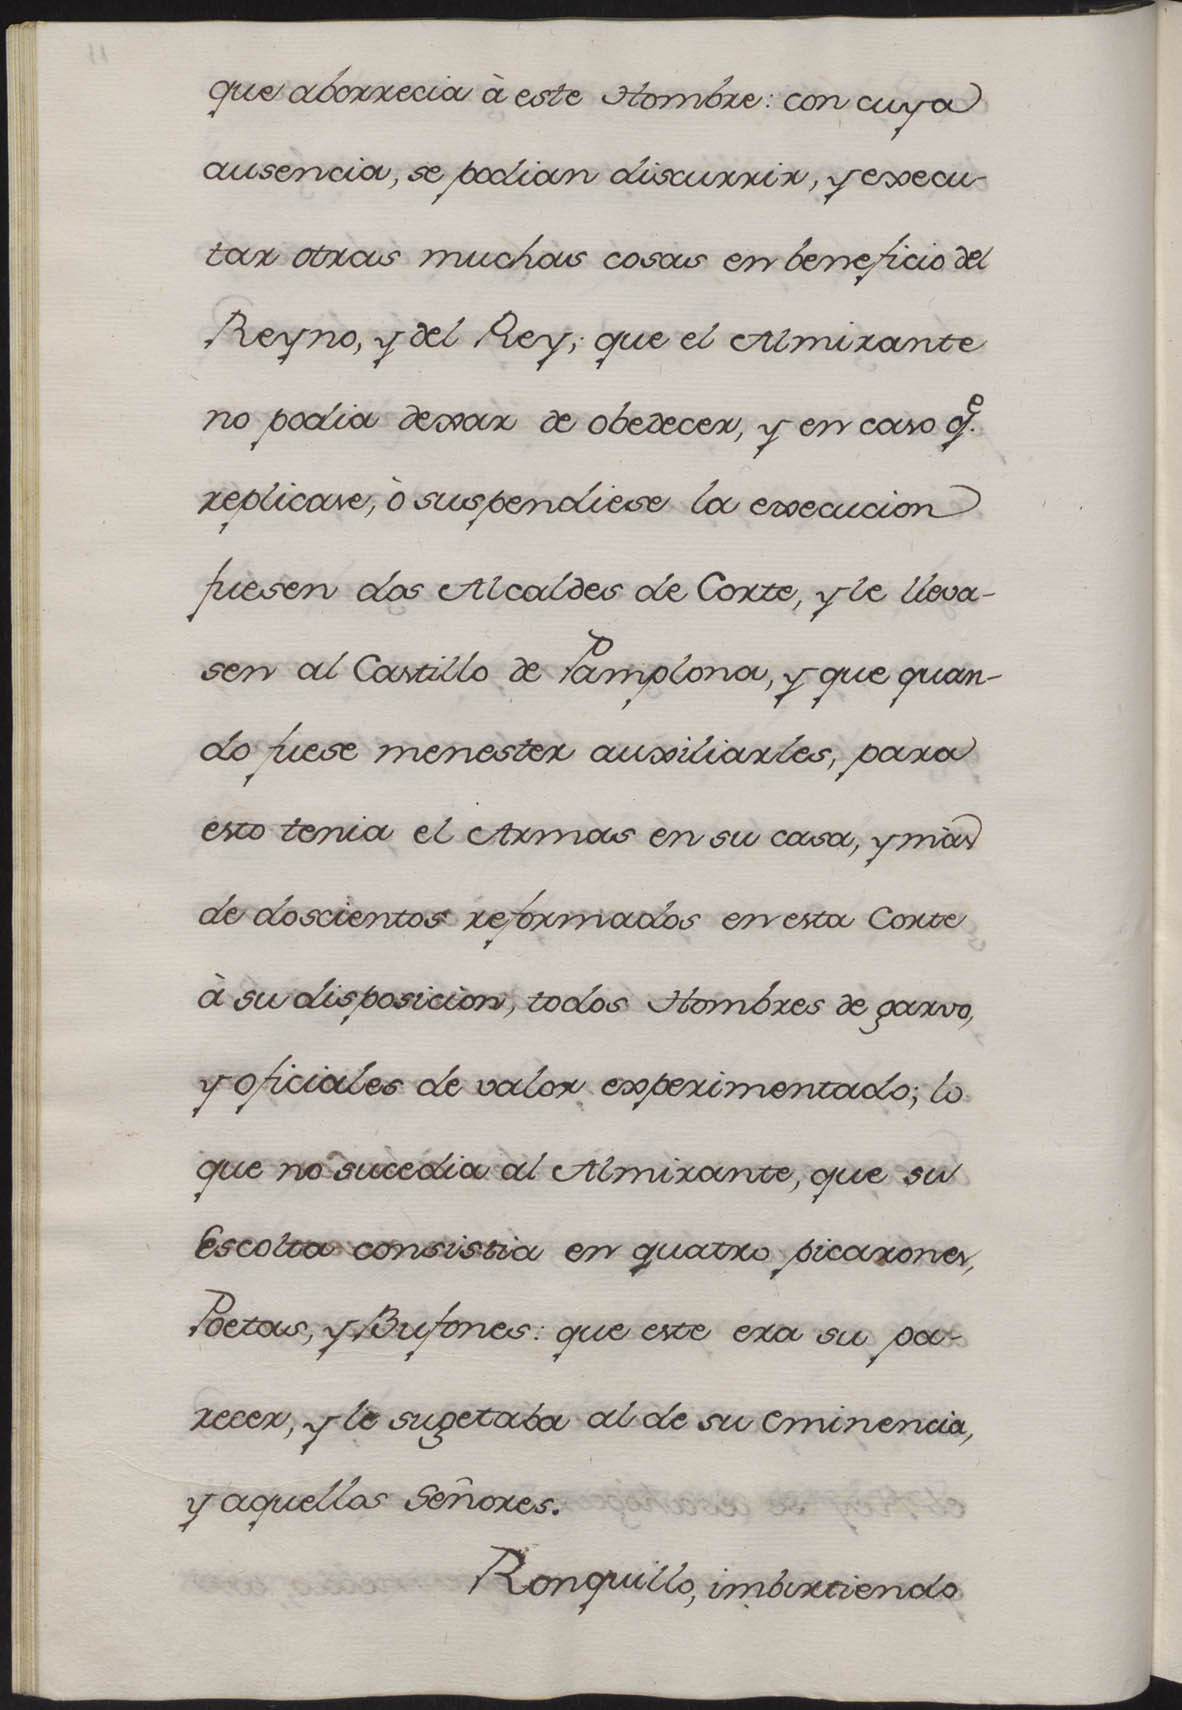 que aborrecia à este Hombre: con cuya
ausencia, se podian discurrir, y execu-
tar otras muchas cosas en beneficio del
Reyno, y del Rey; que el Almirante
no podia dexar de obedecer, y en caso q.e
replicase, ò suspendiese la execucion
fuesen dos Alcaldes de Corte, y le lleva-
sen al Castillo de Pamplona, y que quan-
do fuese menester auxiliarles, para
esto tenia el Armas en su casa, y màs
de doscientos reformados en esta Corte
à su disposicion, todos Hombres de garvo,
y oficiales de valor experimentado; lo
que no sucedia al Almirante, que su
Escolta consistia en quatro picarones,
Poetas, y Bufones: que este era su pa-
recer, y le sugetaba al de su Eminencia,
y aquellos Señores.
Ronquillo, imbirtiendo